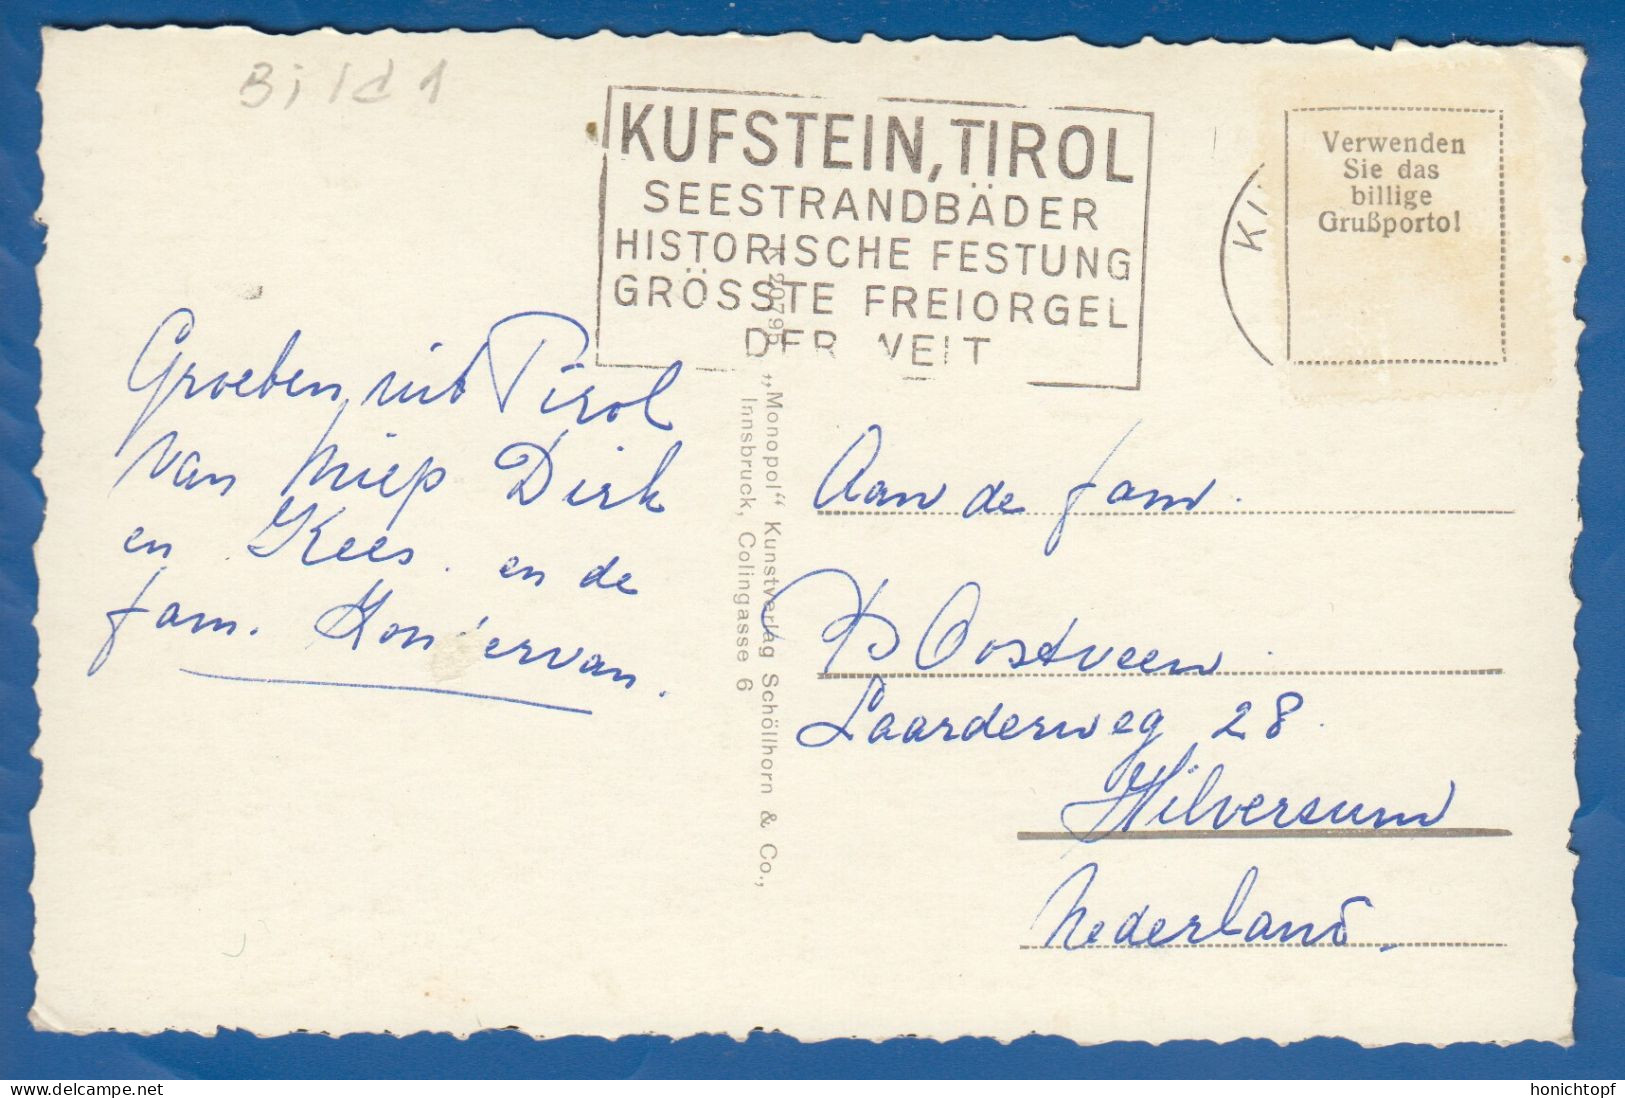 Bild 1
KUFSTEIN, TIROL
SEESTRANDBÄDER
HISTORISCHE FESTUNG
GRÖSSTE FREIORGEL
DER WELT
KI
Verwenden
Sie das
billige
Grußporto!
Groeten uit Tirol
van Miep Dirk
en Kees. en de
fam.
K 20795 „Monopol“ Kunstverlag Schöllhorn & Co.,
Innsbruck, Colingasse 6
Aan de fam.
Oostveen.
Laarderweg 28.
Hilversum
Nederland.
www.delcampe.net
honichtopf